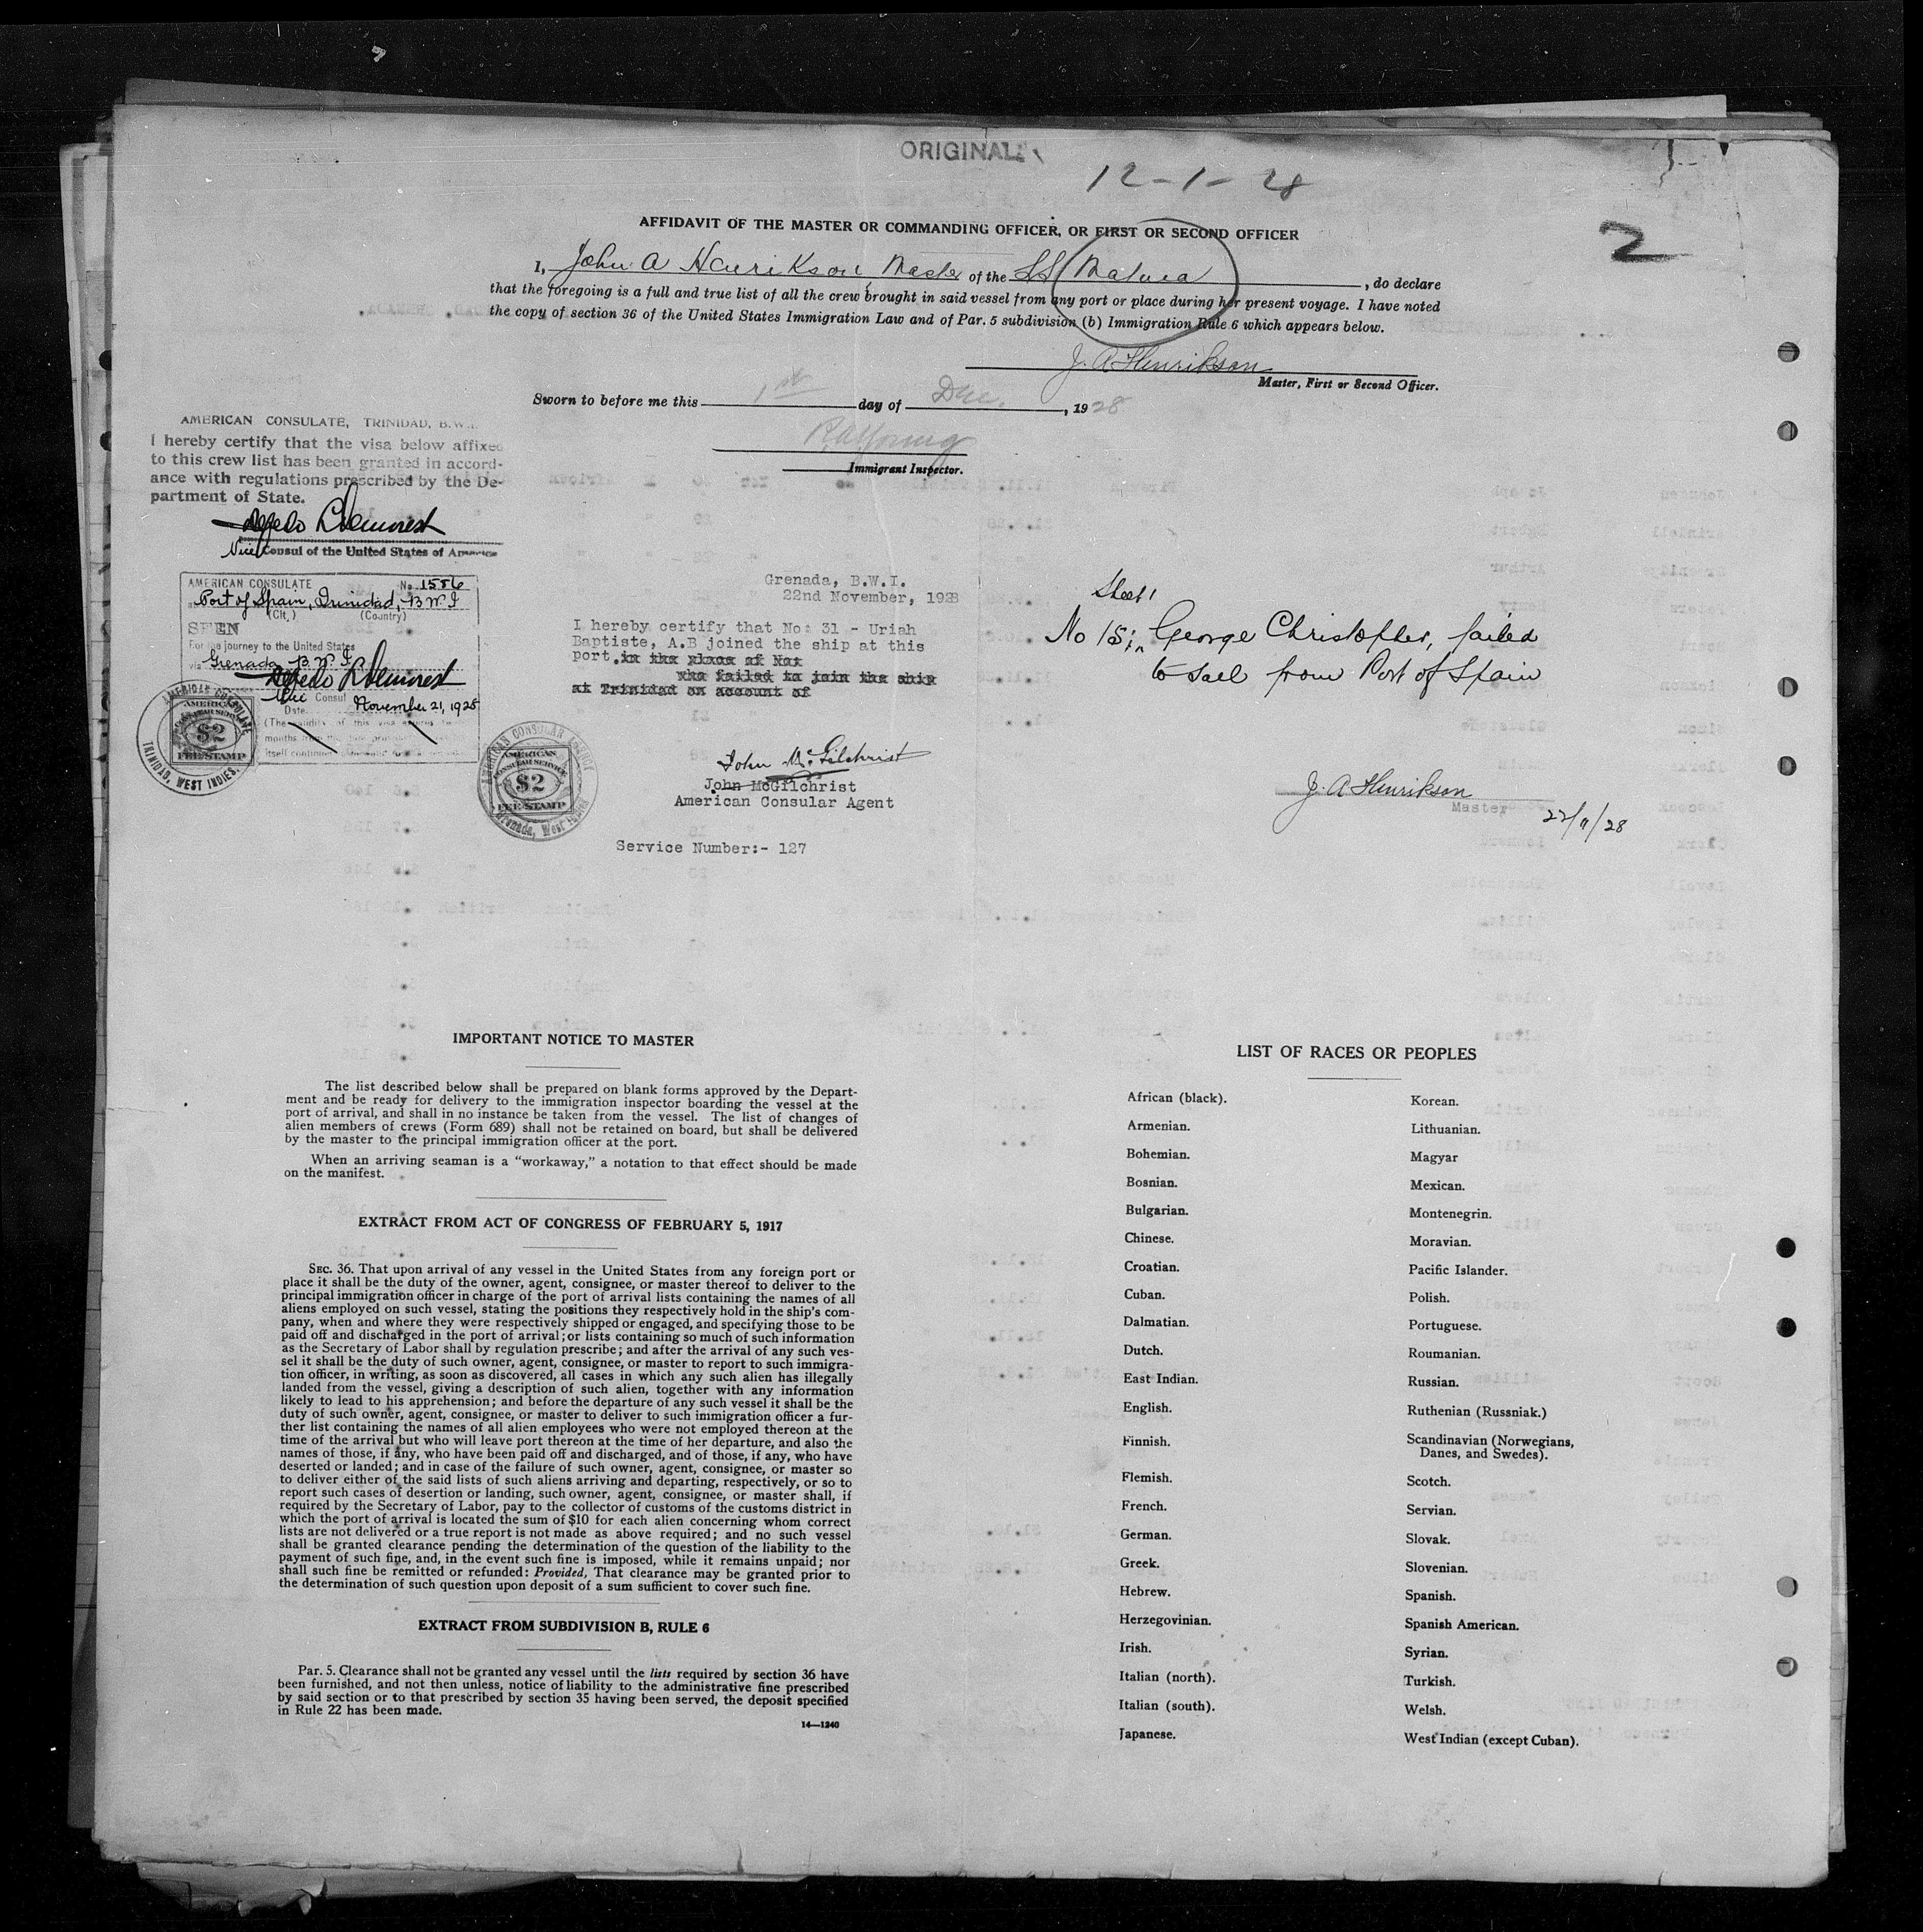 ORIGINAL
12-1-28
2
AFFIDAVIT OF THE MASTER OR COMMANDING OFFICER, OR FIRST OR SECOND OFFICER
I, John A Henrikson, Master of the SS Matura, do declare
that the foregoing is a full and true list of all the crew brought in said vessel from any port or place during her present voyage. I have noted
the copy of section 36 of the United States Immigration Law and of Par. 5 subdivision (b) Immigration Rule 6 which appears below.
J. A Henrikson
Master, First or Second Officer.
Sworn to before me this 1st day of Dec., 1928
Immigrant Inspector.
AMERICAN CONSULATE, TRINIDAD, B.W.I.
I hereby certify that the visa below affixed
to this crew list has been granted in accord-
ance with regulations prescribed by the De-
partment of State.
Vice Consul of the United States of America
AMERICAN CONSULATE No. 1556
Port of Spain, Trinidad, B W I
(City) (Country)
SEEN
For the journey to the United States
via Grenada B W I
Vice Consul
Date November 21, 1928
(The validity of this visa expires
months from
AMERICAN CONSULATE
TRINIDAD, WEST INDIES.
AMERICAN
CONSULAR SERVICE
$2
FEE STAMP
Grenada, B.W.I.
22nd November, 1928
I hereby certify that No: 31 - Uriah
Baptiste, A.B joined the ship at this
port. in the place of Not
who failed to join the ship
at Trinidad on account of
AMERICAN CONSULAR AGENCY
Grenada, West Indies
AMERICAN
CONSULAR SERVICE
$2
FEE STAMP
John McGilchrist
John McGilchrist
American Consular Agent
Service Number:- 127
Sheet 1
No 15; George Christopher, failed
to sail from Port of Spain
J. A Henrikson
Master
22/11/28
IMPORTANT NOTICE TO MASTER
The list described below shall be prepared on blank forms approved by the Depart-
ment and be ready for delivery to the immigration inspector boarding the vessel at the
port of arrival, and shall in no instance be taken from the vessel. The list of changes of
alien members of crews (Form 689) shall not be retained on board, but shall be delivered
by the master to the principal immigration officer at the port.
When an arriving seaman is a "workaway," a notation to that effect should be made
on the manifest.
EXTRACT FROM ACT OF CONGRESS OF FEBRUARY 5, 1917
SEC. 36. That upon arrival of any vessel in the United States from any foreign port or
place it shall be the duty of the owner, agent, consignee, or master thereof to deliver to the
principal immigration officer in charge of the port of arrival lists containing the names of all
aliens employed on such vessel, stating the positions they respectively hold in the ship's com-
pany, when and where they were respectively shipped or engaged, and specifying those to be
paid off and discharged in the port of arrival; or lists containing so much of such information
as the Secretary of Labor shall by regulation prescribe; and after the arrival of any such ves-
sel it shall be the duty of such owner, agent, consignee, or master to report to such immigra-
tion officer, in writing, as soon as discovered, all cases in which any such alien has illegally
landed from the vessel, giving a description of such alien, together with any information
likely to lead to his apprehension; and before the departure of any such vessel it shall be the
duty of such owner, agent, consignee, or master to deliver to such immigration officer a fur-
ther list containing the names of all alien employees who were not employed thereon at the
time of the arrival but who will leave port thereon at the time of her departure, and also the
names of those, if any, who have been paid off and discharged, and of those, if any, who have
deserted or landed; and in case of the failure of such owner, agent, consignee, or master so
to deliver either of the said lists of such aliens arriving and departing, respectively, or so to
report such cases of desertion or landing, such owner, agent, consignee, or master shall, if
required by the Secretary of Labor, pay to the collector of customs of the customs district in
which the port of arrival is located the sum of $10 for each alien concerning whom correct
lists are not delivered or a true report is not made as above required; and no such vessel
shall be granted clearance pending the determination of the question of the liability to the
payment of such fine, and, in the event such fine is imposed, while it remains unpaid; nor
shall such fine be remitted or refunded: Provided, That clearance may be granted prior to
the determination of such question upon deposit of a sum sufficient to cover such fine.
EXTRACT FROM SUBDIVISION B, RULE 6
Par. 5. Clearance shall not be granted any vessel until the lists required by section 36 have
been furnished, and not then unless, notice of liability to the administrative fine prescribed
by said section or to that prescribed by section 35 having been served, the deposit specified
in Rule 22 has been made.
14—1240
LIST OF RACES OR PEOPLES
African (black).
Armenian.
Bohemian.
Bosnian.
Bulgarian.
Chinese.
Croatian.
Cuban.
Dalmatian.
Dutch.
East Indian.
English.
Finnish.
Flemish.
French.
German.
Greek.
Hebrew.
Herzegovinian.
Irish.
Italian (north).
Italian (south).
Japanese.
Korean.
Lithuanian.
Magyar
Mexican.
Montenegrin.
Moravian.
Pacific Islander.
Polish.
Portuguese.
Roumanian.
Russian.
Ruthenian (Russniak.)
Scandinavian (Norwegians,
Danes, and Swedes).
Scotch.
Servian.
Slovak.
Slovenian.
Spanish.
Spanish American.
Syrian.
Turkish.
Welsh.
West Indian (except Cuban).